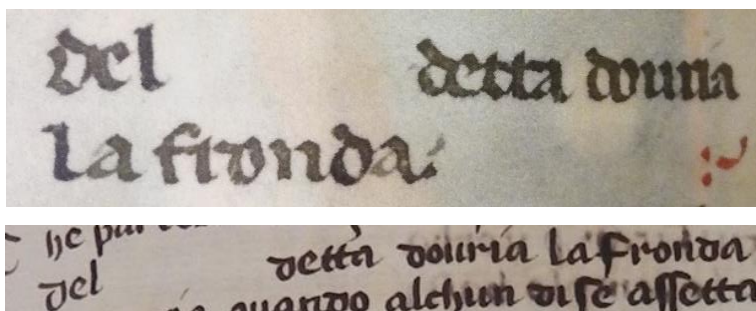 del detta douria
la fronda:
detta douria la fronda
del
quando alchun dise assetta